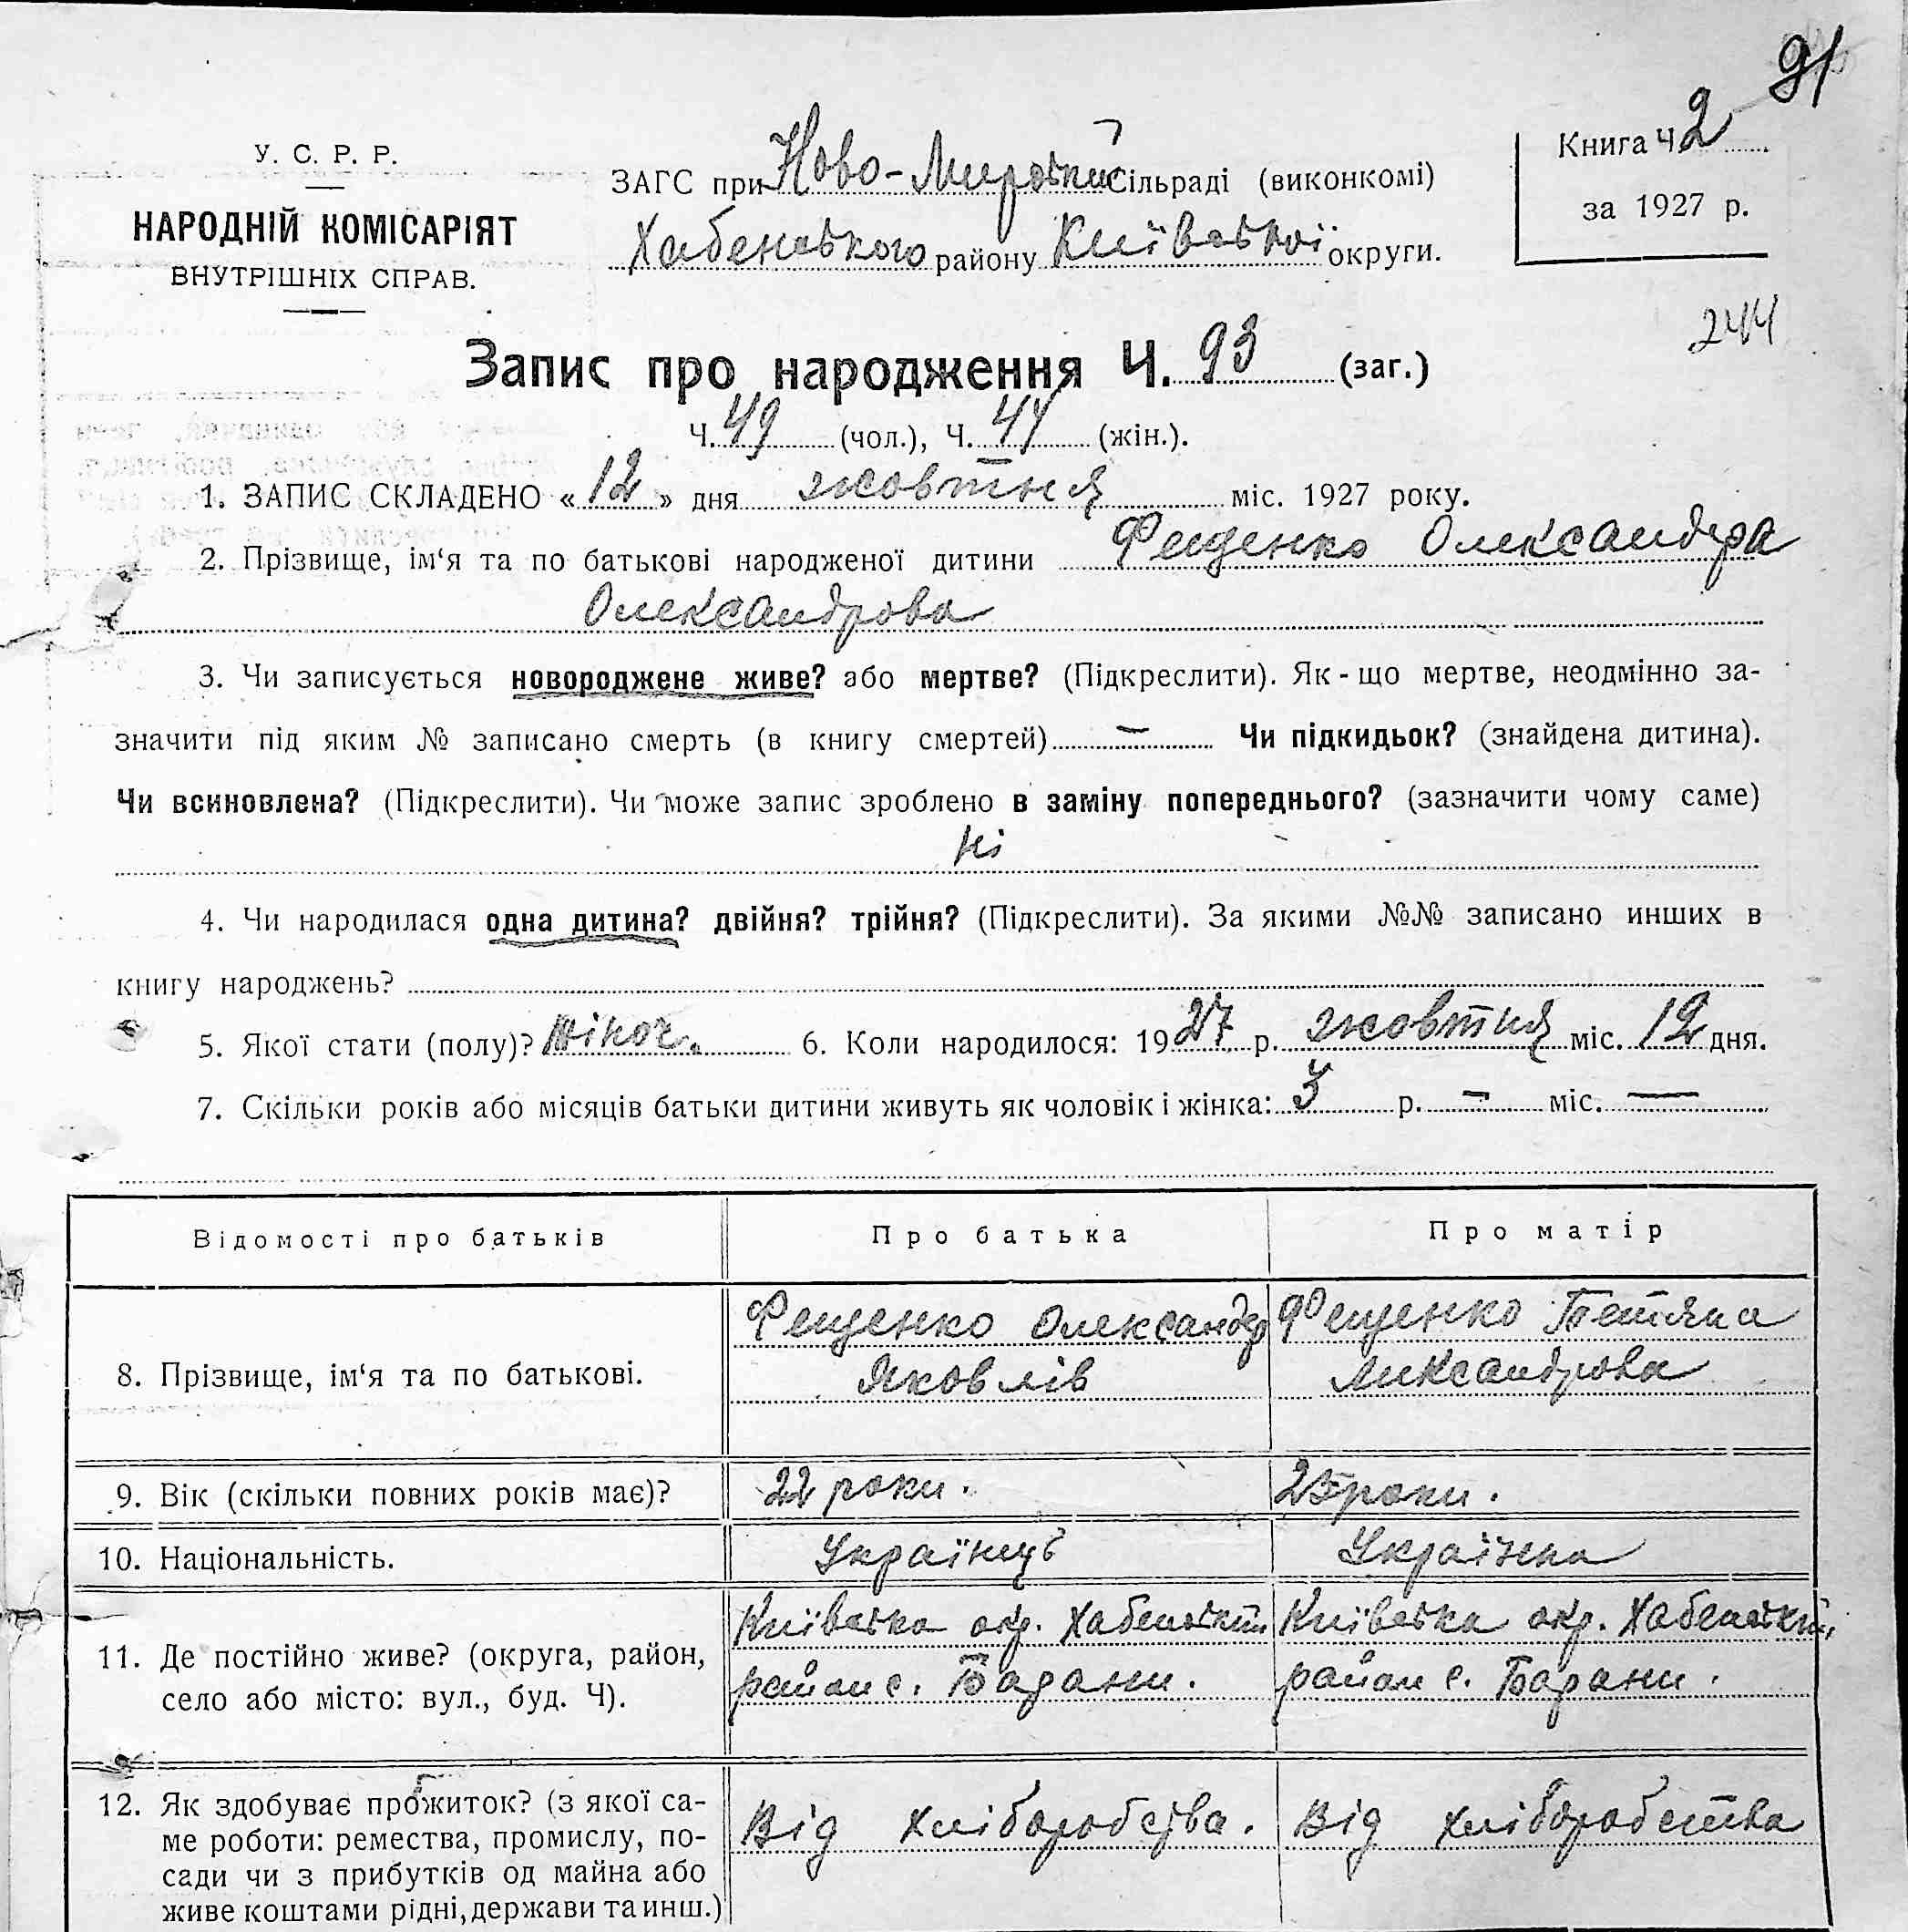 91
У. С. Р. Р.
НАРОДНІЙ КОМІСАРІЯТ
ВНУТРІШНІХ СПРАВ.
ЗАГС при Ново-Мирській Сільраді (виконкомі)
Хабенського району Київської округи.
Книга Ч. 2
за 1927 р.
244
Запис про народження Ч. 93 (заг.)
Ч. 49 (чол.), Ч. 44 (жін.).
1. ЗАПИС СКЛАДЕНО «12» дня жовтня міс. 1927 року.
2. Прізвище, ім‘я та по батькові народженої дитини Фещенко Олександра
Олександрова
3. Чи записується новороджене живе? або мертве? (Підкреслити). Як-що мертве, неодмінно за-
значити під яким № записано смерть (в книгу смертей) — Чи підкидьок? (знайдена дитина).
Чи всиновлена? (Підкреслити). Чи може запис зроблено в заміну попереднього? (зазначити чому саме)
ні
4. Чи народилася одна дитина? двійня? трійня? (Підкреслити). За якими №№ записано инших в
книгу народжень?
5. Якої стати (полу)? жіноч. 6. Коли народилося: 1927 р. жовтня міс. 12 дня.
7. Скільки років або місяців батьки дитини живуть як чоловік і жінка: 3 р. — міс. —
Відомості про батьків Про батька Про матір
8. Прізвище, ім‘я та по батькові.
Фещенко Олександер
Яковлів
Фещенко Тетяна
Александрова
9. Вік (скільки повних років має)? 22 роки. 23 роки.
10. Національність. Українець Українка
11. Де постійно живе? (округа, район,
село або місто: вул., буд. Ч).
Київська окр. Хабенський
район с. Барани.
Київська окр. Хабенський
район с. Барани.
12. Як здобуває прожиток? (з якої са-
ме роботи: ремества, промислу, по-
сади чи з прибутків од майна або
живе коштами рідні, держави та инш.)
Від хліборобства.
Від хліборобства